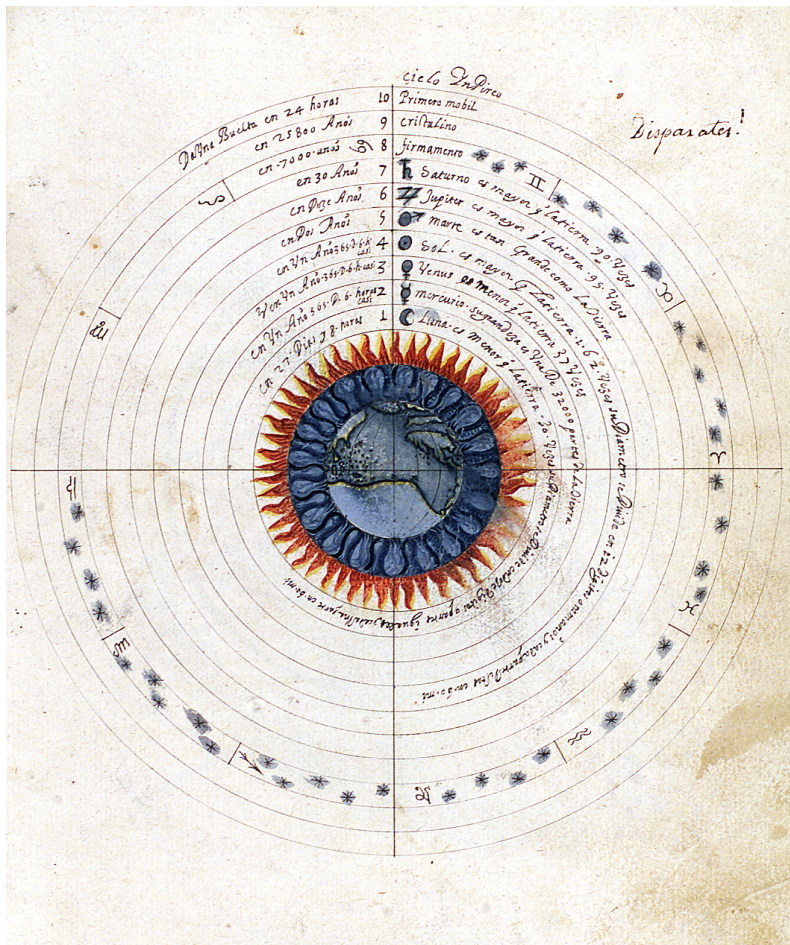 cielo Ynpireo
Da Una Buelta en 24 horas 10 Primero mobil
en 25800 Años 9 cristalino
en 7000 años 8 firmamento
en 30 Años 7 ♄ Saturno es mayor q̃ la tierra 90 Vezes
en Doze Años 6 ♃ Jupiter es mayor q̃ la tierra 95 Vezes
en Dos Años 5 ♂ marte es tan Grande como La tierra
en Un Año 365 D. 6 h. casi 4 ☉ Sol. es mayor q̃ La tierra 162 Vezes su Diametro se Divide en 12 digitos
en Un Año 365 D. 6 h. casi 3 ♀ Venus es menor q̃ la tierra 37 Vezes
en Un Año 365 D. 6 horas casi 2 ☿ mercurio su grandeza es Una De 32000 partes de La tierra
en 27 Dias y 8 horas 1 ☾ Luna es menor q̃ la tierra
Disparates!
♊
♉
♈
♓
♒
♑
♐
♏
♎
♍
♌
♋